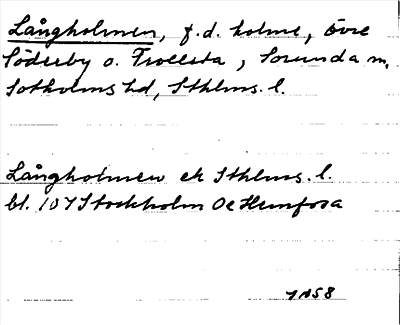 Långholmen, f.d. holme, Övre
Söderby o. Trollsta, Sorunda sn,
Sotholms hd, Sthlms. l.
Långholmen ek Sthlms. l.
bl. 107 Stockholm Oc Hemfosa
1958